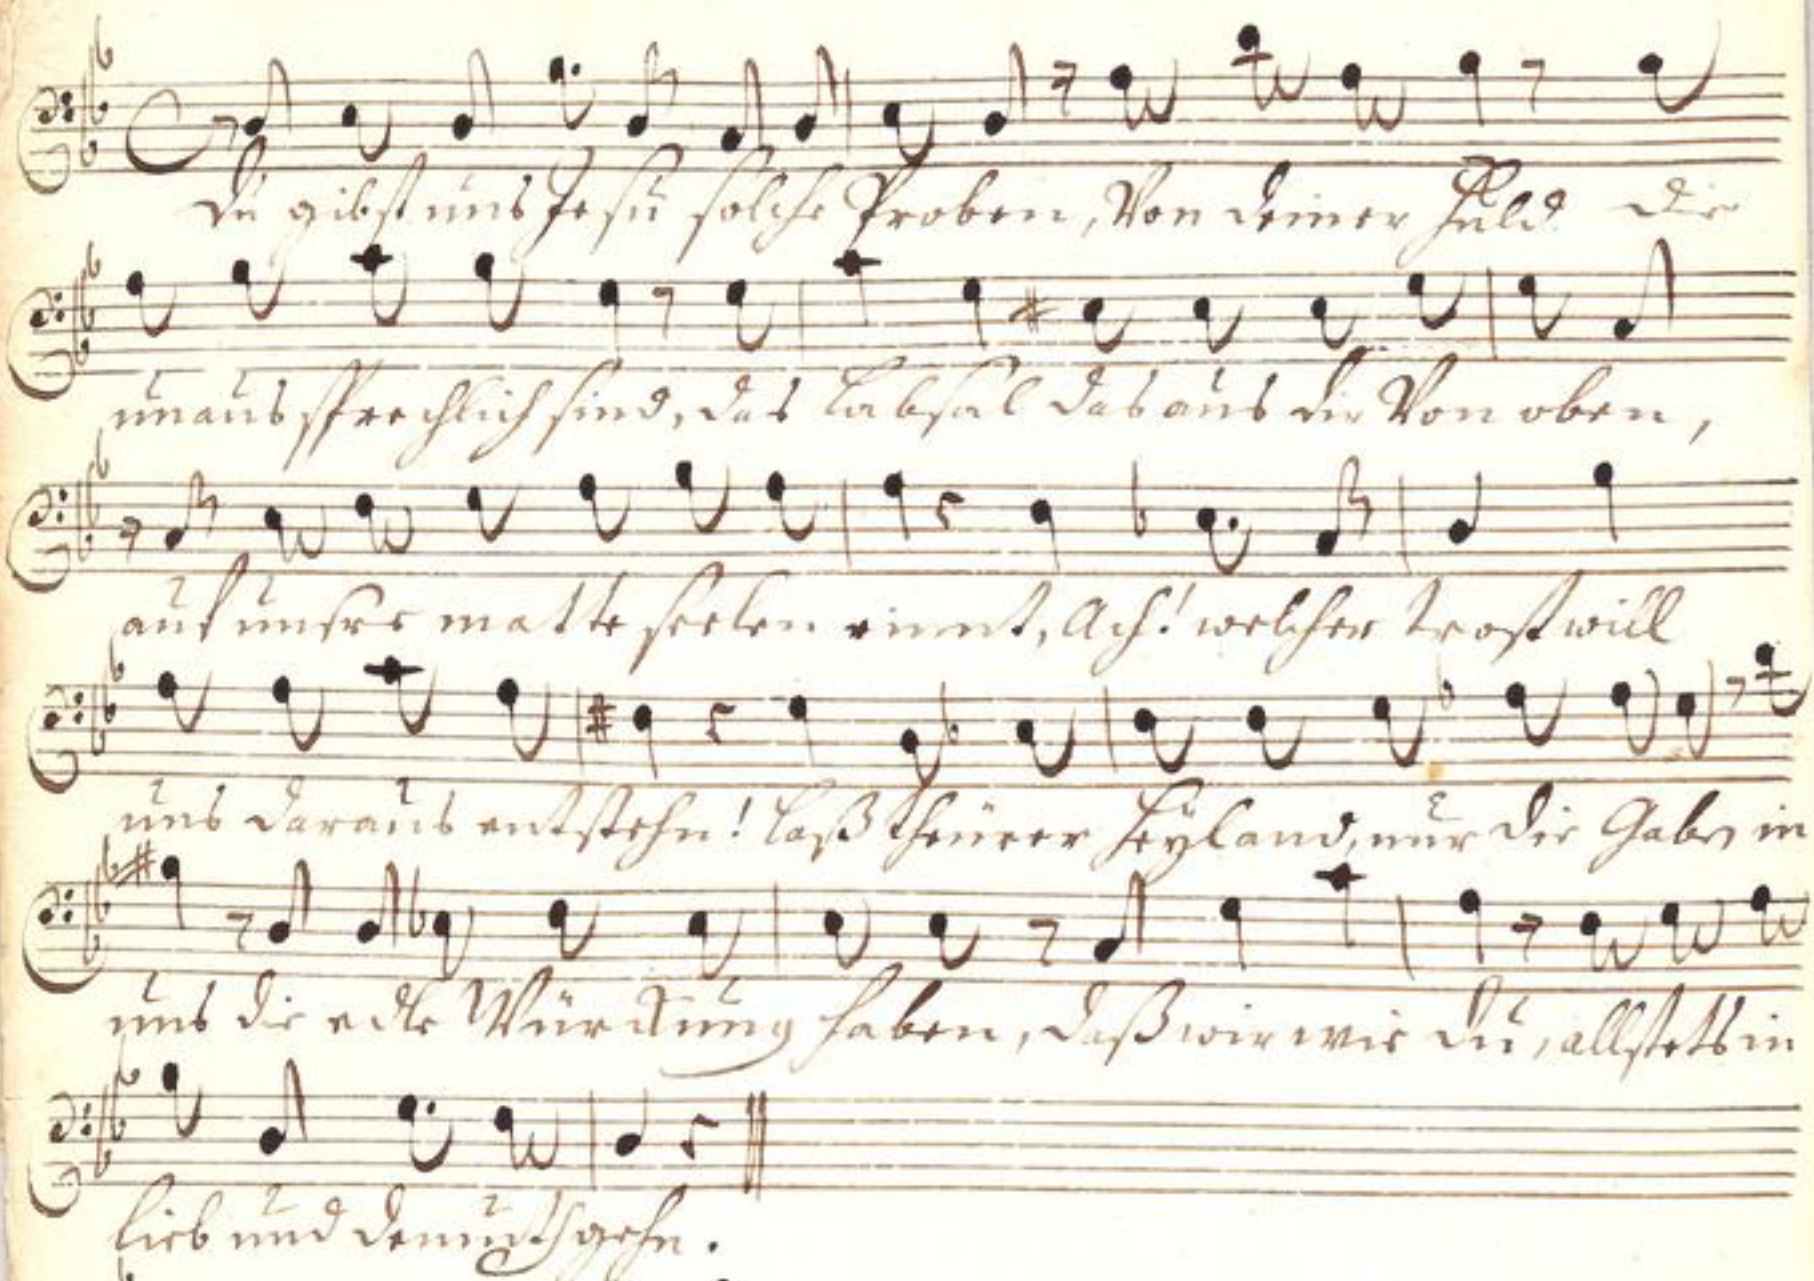 Du gibst uns Jesu solche Proben, Von deiner Huld die
unaussprechlich sind, das Labsal das aus dir Von oben,
auf unsre matte seelen rinnt, Ach! welcher trost will
uns daraus entstehn! Laß theürer Heyland, nur die Gaben in
uns die edle Würckung haben, daß wir wie du, allstets in
Lieb und demuth gehn.